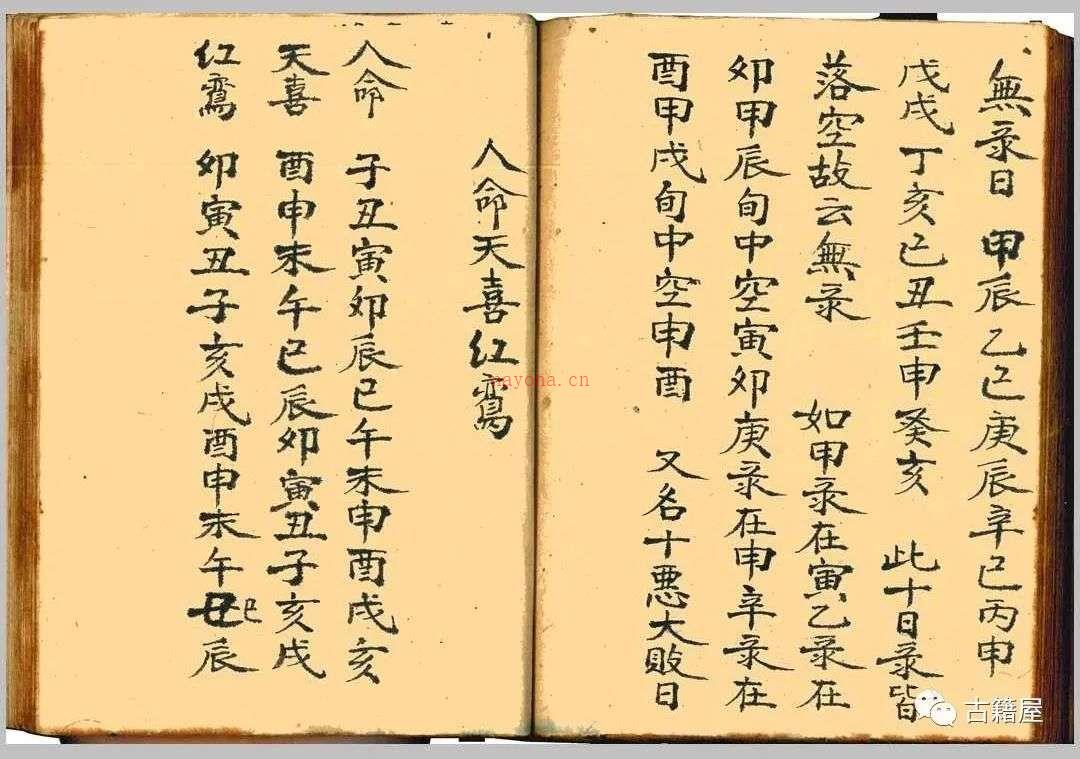 無彔日 甲辰乙巳庚辰辛巳丙申
戊戌丁亥己丑壬申癸亥 此十日彔皆
落空故云無彔 如甲彔在寅乙彔在
卯甲辰旬中空寅卯庚彔在申辛彔在
酉甲戌旬中空申酉 又名十悪大敗日
人命天喜红鸾
人命 子丑寅卯辰巳午未申酉戌亥
天喜 酉申未午巳辰卯寅丑子亥戌
红鸾 卯寅丑子亥戌酉申未午丑巳辰
nayona.cn
古籍屋